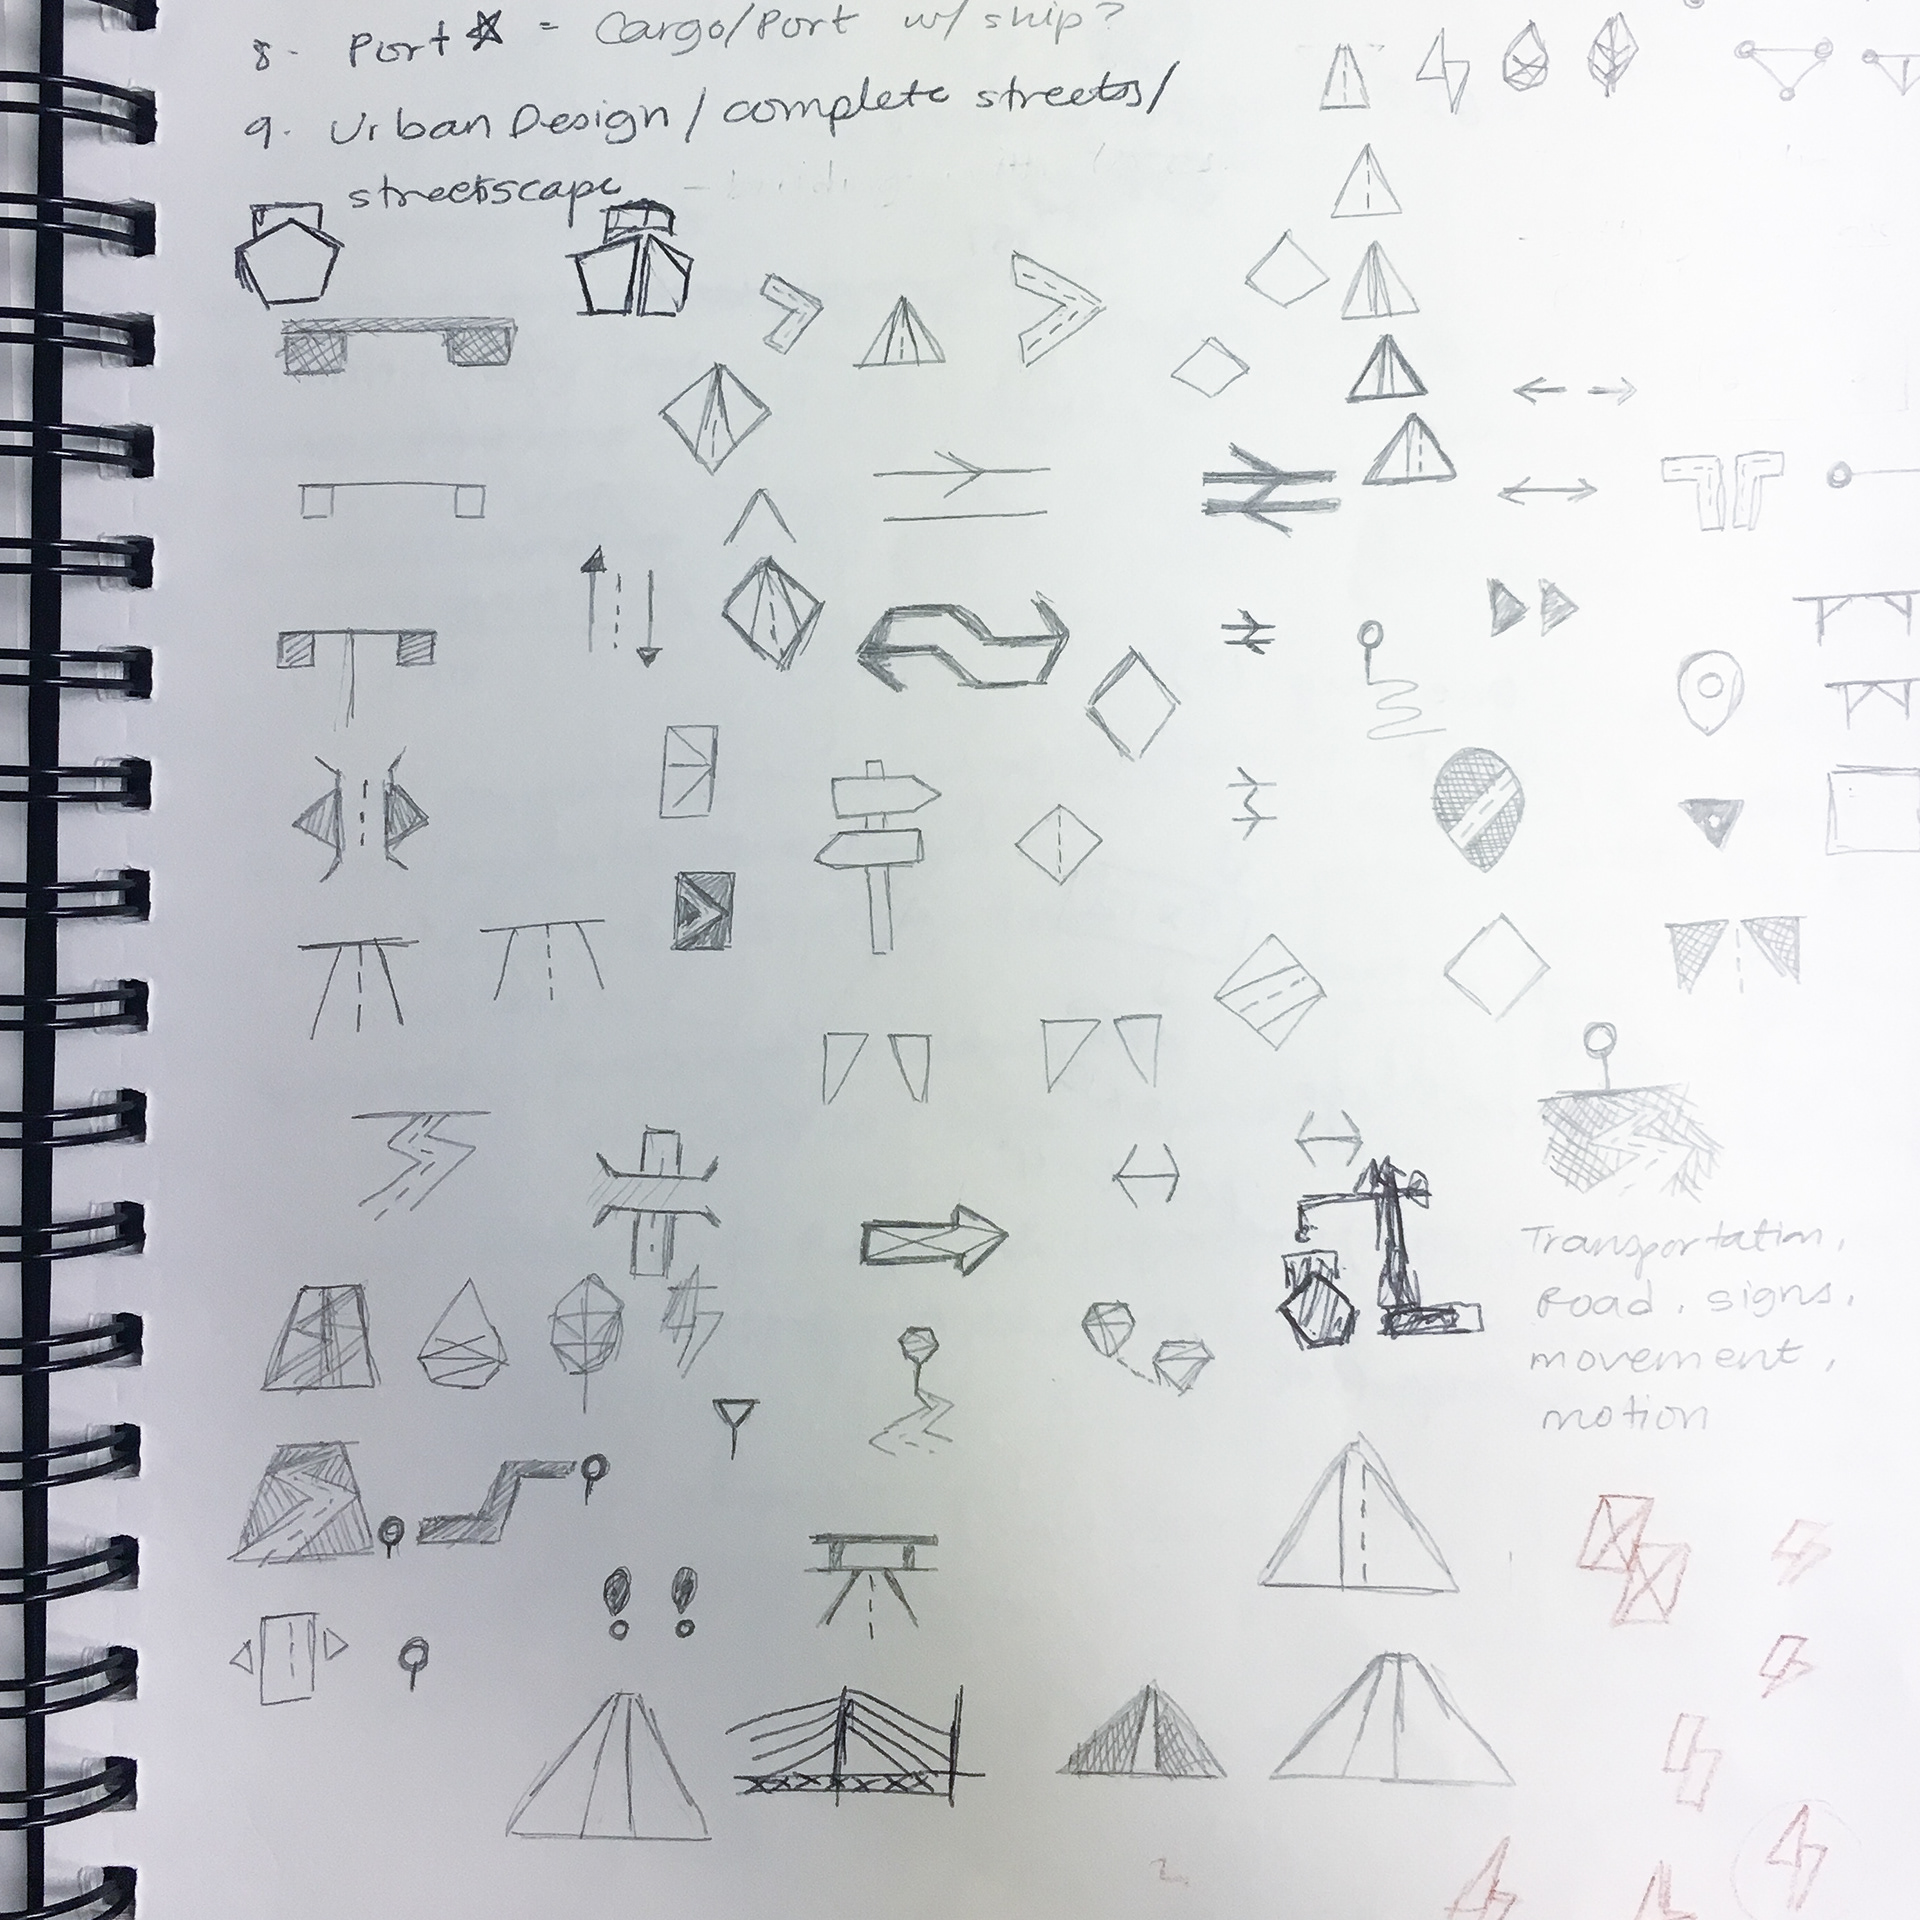 8. Port ☆ = Cargo/Port w/ ship?
9. Urban Design / complete streets/
streetscape
Transportation,
Road, signs,
movement,
motion
2